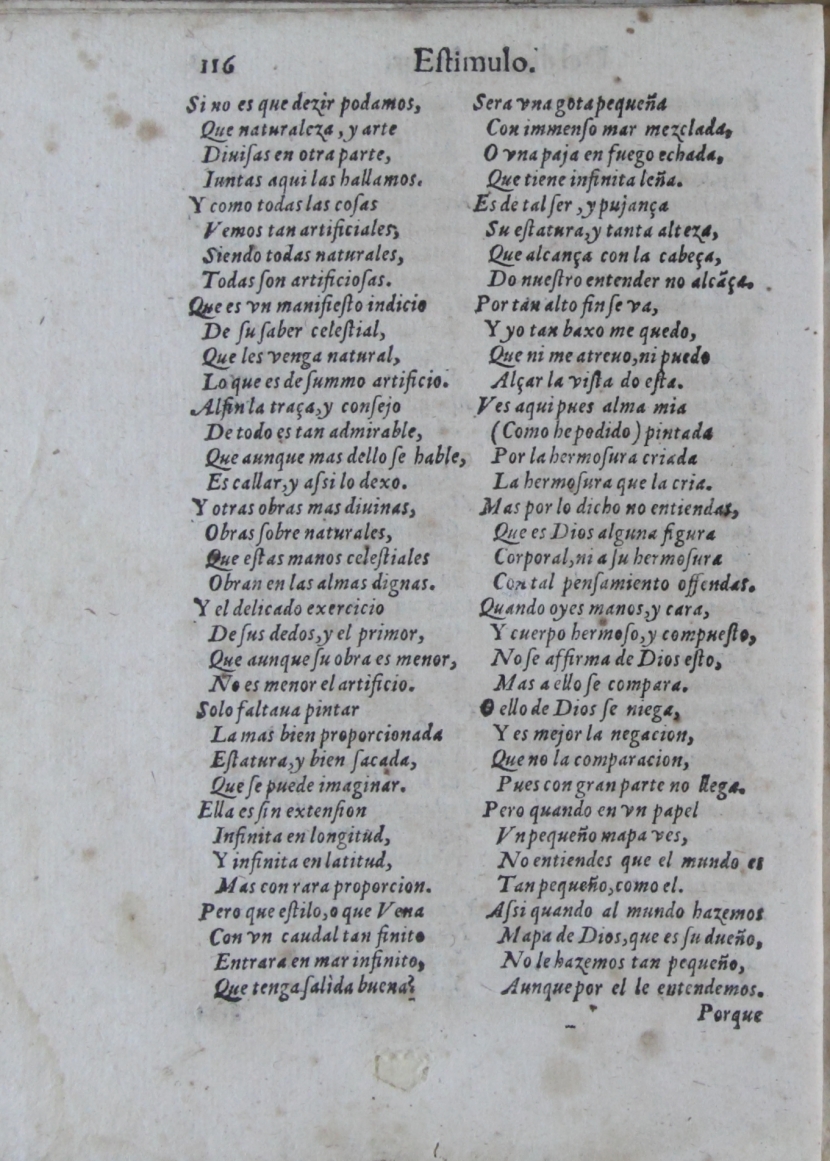 116
Eſtimulo.
Si no es que dezir podamos,
Que naturaleza, y arte
Diuiſas en otra parte,
Iuntas aqui las hallamos.
Y como todas las coſas
Vemos tan artificiales,
Siendo todas naturales,
Todas ſon artificioſas.
Que es vn manifieſto indicio
De ſu ſaber celeſtial,
Que les venga natural,
Lo que es de ſummo artificio.
Al fin la traça, y conſejo
De todo es tan admirable,
Que aunque mas dello ſe hable,
Es callar, y aſsi lo dexo.
Y otras obras mas diuinas,
Obras ſobre naturales,
Que eſtas manos celeſtiales
Obran en las almas dignas.
Y el delicado exercicio
De ſus dedos, y el primor,
Que aunque ſu obra es menor,
No es menor el artificio.
Solo faltaua pintar
La mas bien proporcionada
Eſtatura, y bien ſacada,
Que ſe puede imaginar.
Ella es ſin extenſion
Infinita en longitud,
Y infinita en latitud,
Mas con rara proporcion.
Pero que eſtilo, o que Vena
Con vn caudal tan finito
Entrara en mar infinito,
Que tenga ſalida buena?
Sera vna gota pequeña
Con immenſo mar mezclada,
O vna paja en fuego echada,
Que tiene infinita leña.
Es de tal ſer, y pujança
Su eſtatura, y tanta alteza,
Que alcança con la cabeça,
Do nueſtro entender no alcãça.
Por tan alto fin ſe va,
Y yo tan baxo me quedo,
Que ni me atreuo, ni puedo
Alçar la viſta do eſta.
Ves aqui pues alma mia
(Como he podido) pintada
Por la hermoſura criada
La hermoſura que la cria.
Mas por lo dicho no entiendas,
Que es Dios alguna figura
Corporal, ni a ſu hermoſura
Con tal penſamiento offendas.
Quando oyes manos, y cara,
Y cuerpo hermoſo, y compueſto,
No ſe affirma de Dios eſto,
Mas a ello ſe compara.
O ello de Dios ſe niega,
Y es mejor la negacion,
Que no la comparacion,
Pues con gran parte no llega.
Pero quando en vn papel
Vn pequeño mapa ves,
No entiendes que el mundo es
Tan pequeño, como el.
Aſsi quando al mundo hazemos
Mapa de Dios, que es ſu dueño,
No le hazemos tan pequeño,
Aunque por el le entendemos.
Porque